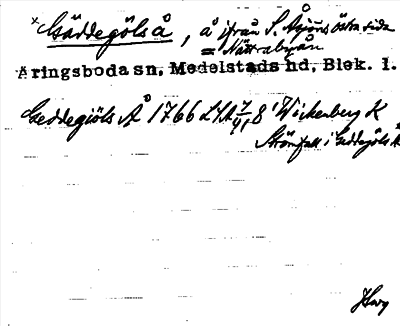 × Gäddegöls å, å ifrån S. Åsjöns östra sida
= Nättrabyån
Äringsboda sn, Medelstads hd, Blek. l.
Geddegiöls Å 1766 LSA 7/4, 8 Wickenberg K
Strömfall i Geddegöls Å